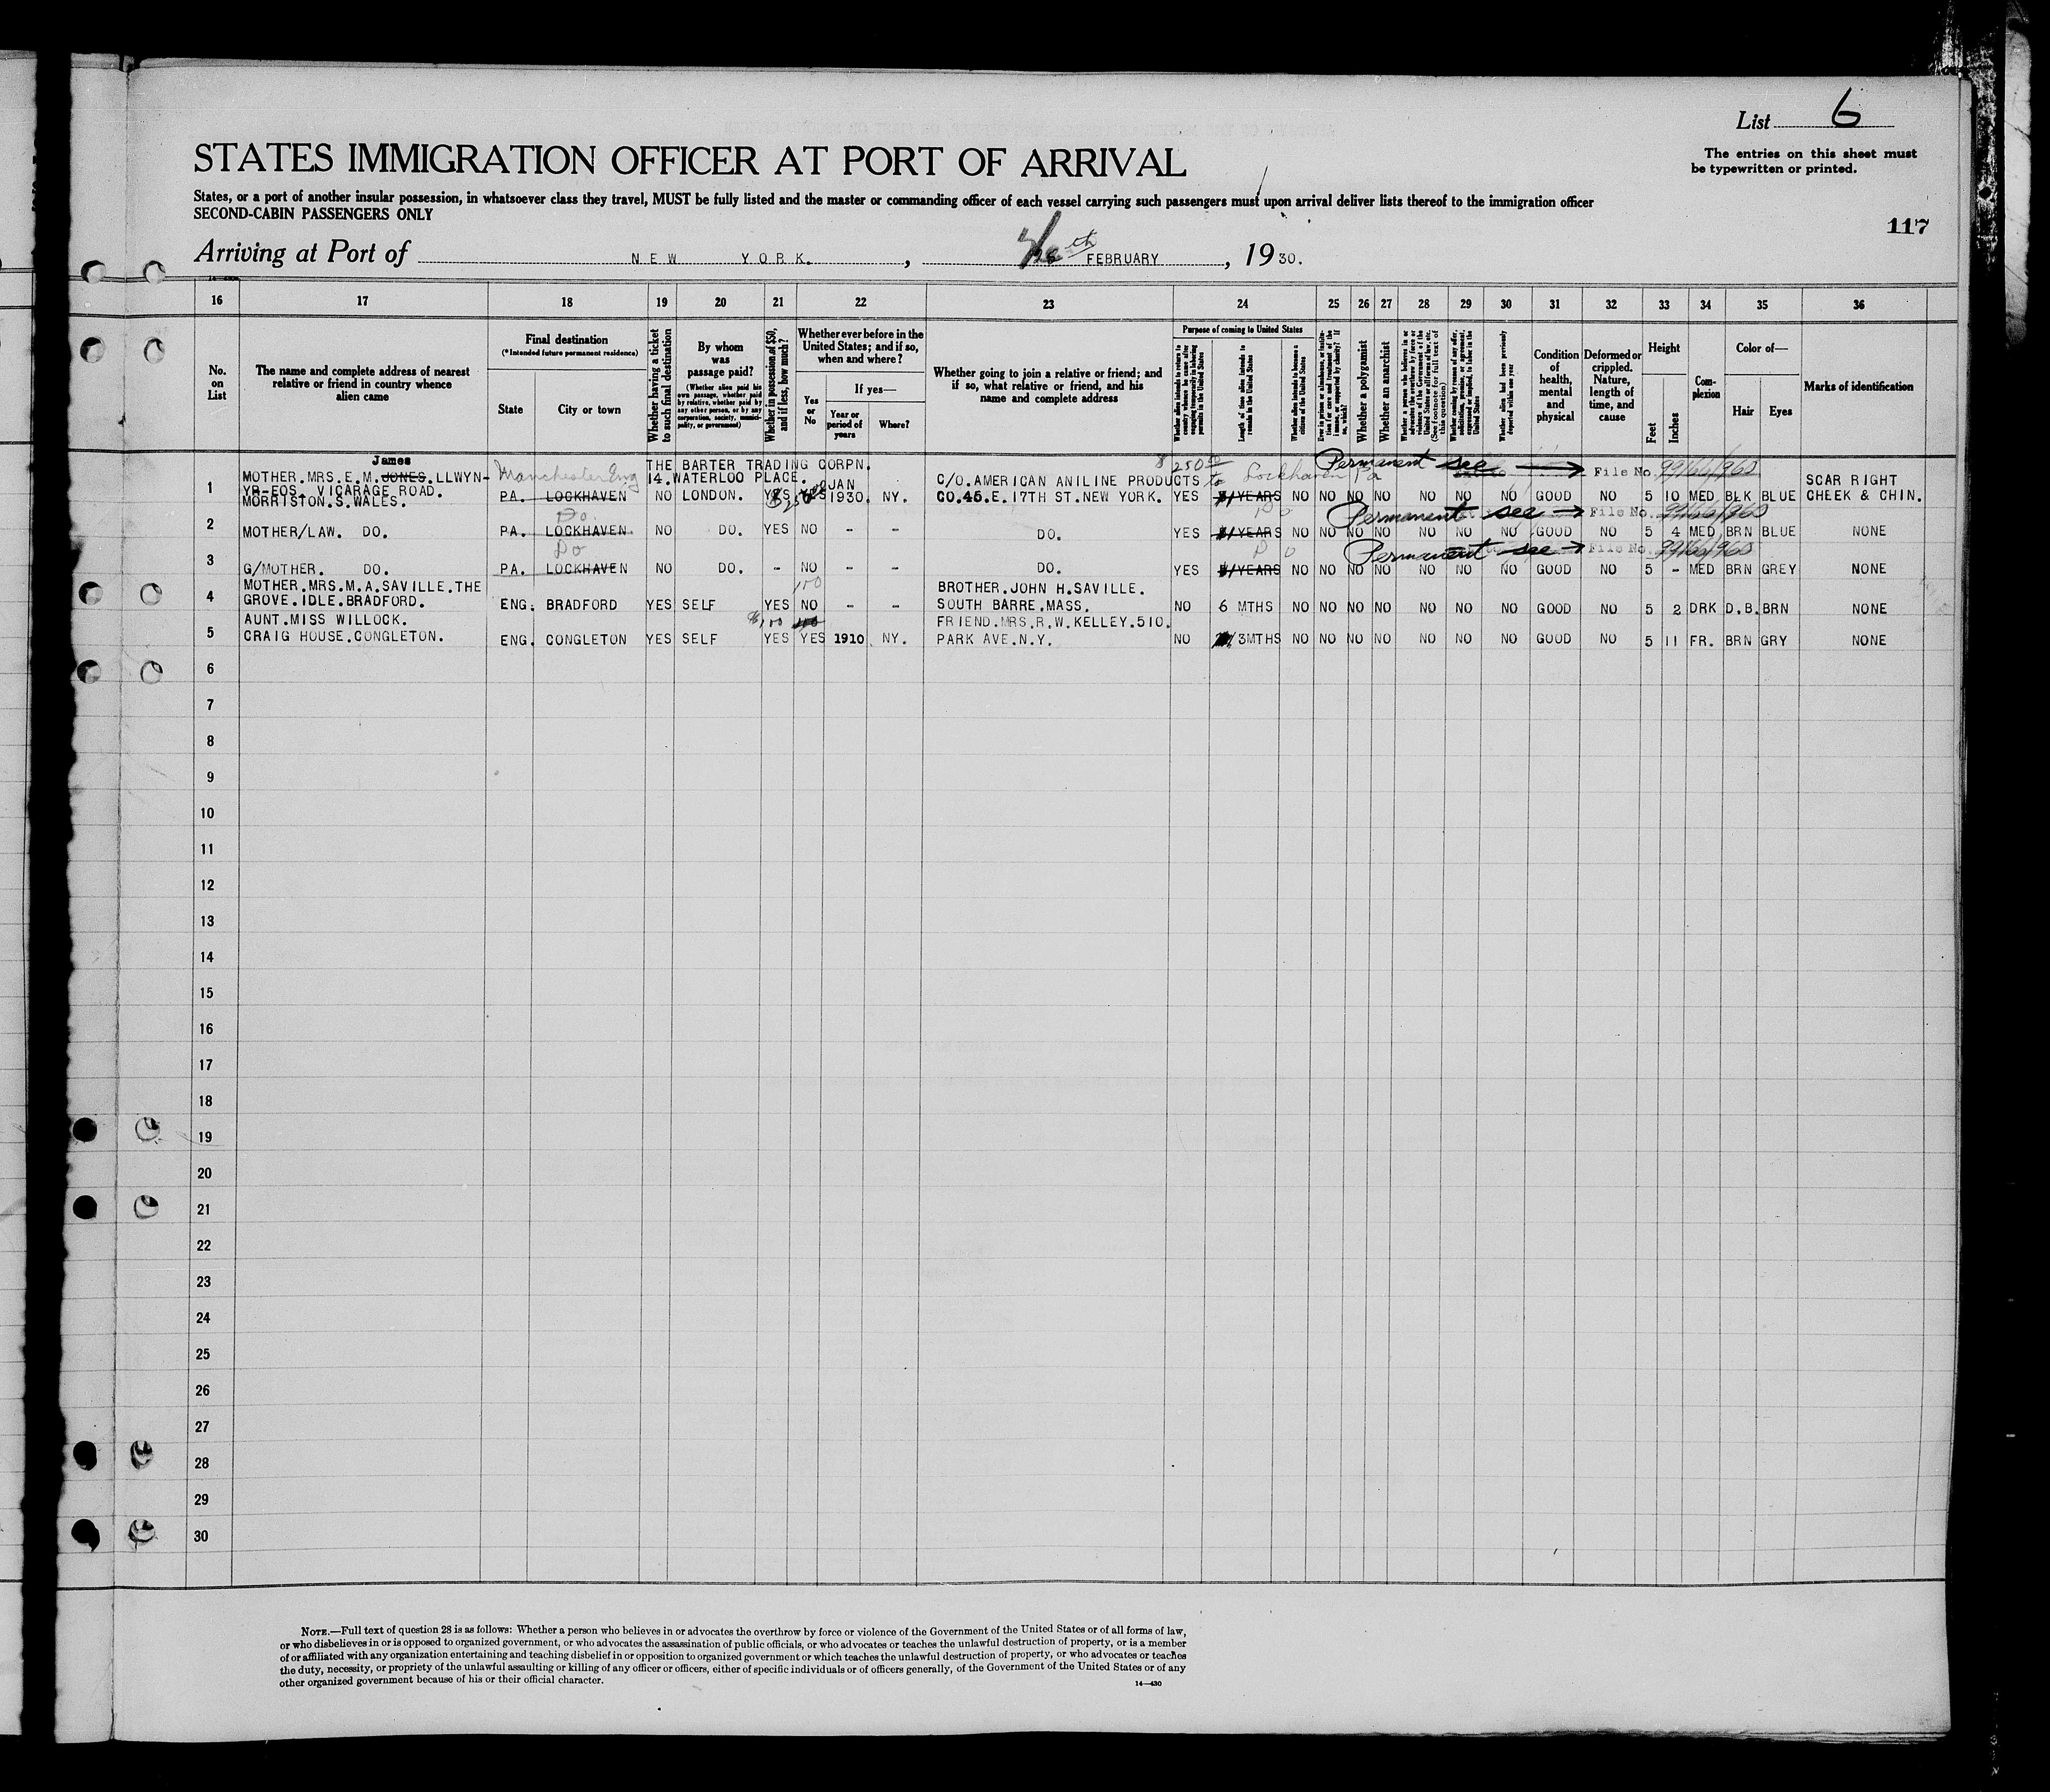 List 6
STATES IMMIGRATION OFFICER AT PORT OF ARRIVAL
The entries on this sheet must
be typewritten or printed.
States, or a port of another insular possession, in whatsoever class they travel, MUST be fully listed and the master or commanding officer of each vessel carrying such passengers must upon arrival deliver lists thereof to the immigration officer
SECOND-CABIN PASSENGERS ONLY
117
Arriving at Port of NEW YORK. , th FEBRUARY , 1930.
16 17 18 19 20 21 22 23 24 25 26 27 28 29 30 31 32 33 34 35 36
No. on List
The name and complete address of nearest relative or friend in country whence alien came
Final destination
(*Intended future permanent residence)
State
City or town
Whether having a ticket to such final destination
By whom was passage paid?
(Whether alien paid his own passage, whether paid by relative, whether paid by any other person, or by any corporation, society, municipality, or government)
Whether in possession of $50, and if less, how much?
Whether ever before in the United States; and if so, when and where?
Yes or No
If yes—
Year or period of years
Where?
Whether going to join a relative or friend; and if so, what relative or friend, and his name and complete address
Purpose of coming to United States
Length of time alien intends to remain in the United States
Whether alien intends to become a citizen of the United States
Whether a polygamist
Whether an anarchist
Condition of health, mental and physical
Deformed or crippled. Nature, length of time, and cause
Height
Feet
Inches
Complexion
Color of—
Hair
Eyes
Marks of identification
James
1 MOTHER.MRS.E.M.JONES.LLWYN-
YR-EOS. VICARAGE ROAD.
MORRISTON.S.WALES.
Manchester Eng
PA. LOCKHAVEN NO
THE BARTER TRADING CORPN.
14.WATERLOO PLACE.
LONDON. YES YES JAN 1930. NY.
C/O.AMERICAN ANILINE PRODUCTS
CO.45.E.17TH ST.NEW YORK. YES
250 to Lockhaven Pa
Permanent see File No. 99166/960
YEARS NO NO NO NO NO NO NO GOOD NO 5 10 MED BLK BLUE
SCAR RIGHT
CHEEK & CHIN.
2 MOTHER/LAW. DO. Do. PA. LOCKHAVEN NO DO. YES NO - - DO. YES YEARS NO NO NO NO NO NO NO GOOD NO 5 4 MED BRN BLUE NONE
Permanent see File No. 99166/960
3 G/MOTHER. DO. Do PA. LOCKHAVEN NO DO. - NO - - DO. YES YEARS NO NO NO NO NO NO NO GOOD NO 5 - MED BRN GREY NONE
Permanent see File No. 99166/960
4 MOTHER.MRS.M.A.SAVILLE.THE
GROVE.IDLE.BRADFORD. ENG. BRADFORD YES SELF YES 150 NO - -
BROTHER.JOHN H.SAVILLE.
SOUTH BARRE.MASS. NO 6 MTHS NO NO NO NO NO NO NO GOOD NO 5 2 DRK D.B. BRN NONE
5 AUNT.MISS WILLOCK.
CRAIG HOUSE.CONGLETON. ENG. CONGLETON YES SELF YES YES 1910 NY.
FRIEND.MRS.R.W.KELLEY.510.
PARK AVE.N.Y. NO 3MTHS NO NO NO NO NO NO NO GOOD NO 5 11 FR. BRN GRY NONE
6
7
8
9
10
11
12
13
14
15
16
17
18
19
20
21
22
23
24
25
26
27
28
29
30
NOTE.—Full text of question 28 is as follows: Whether a person who believes in or advocates the overthrow by force or violence of the Government of the United States or of all forms of law,
or who disbelieves in or is opposed to organized government, or who advocates the assassination of public officials, or who advocates or teaches the unlawful destruction of property, or is a member
of or affiliated with any organization entertaining and teaching disbelief in or opposition to organized government or which teaches the unlawful destruction of property, or who advocates or teaches
the duty, necessity, or propriety of the unlawful assaulting or killing of any officer or officers, either of specific individuals or of officers generally, of the Government of the United States or of any
other organized government because of his or their official character.
14—430